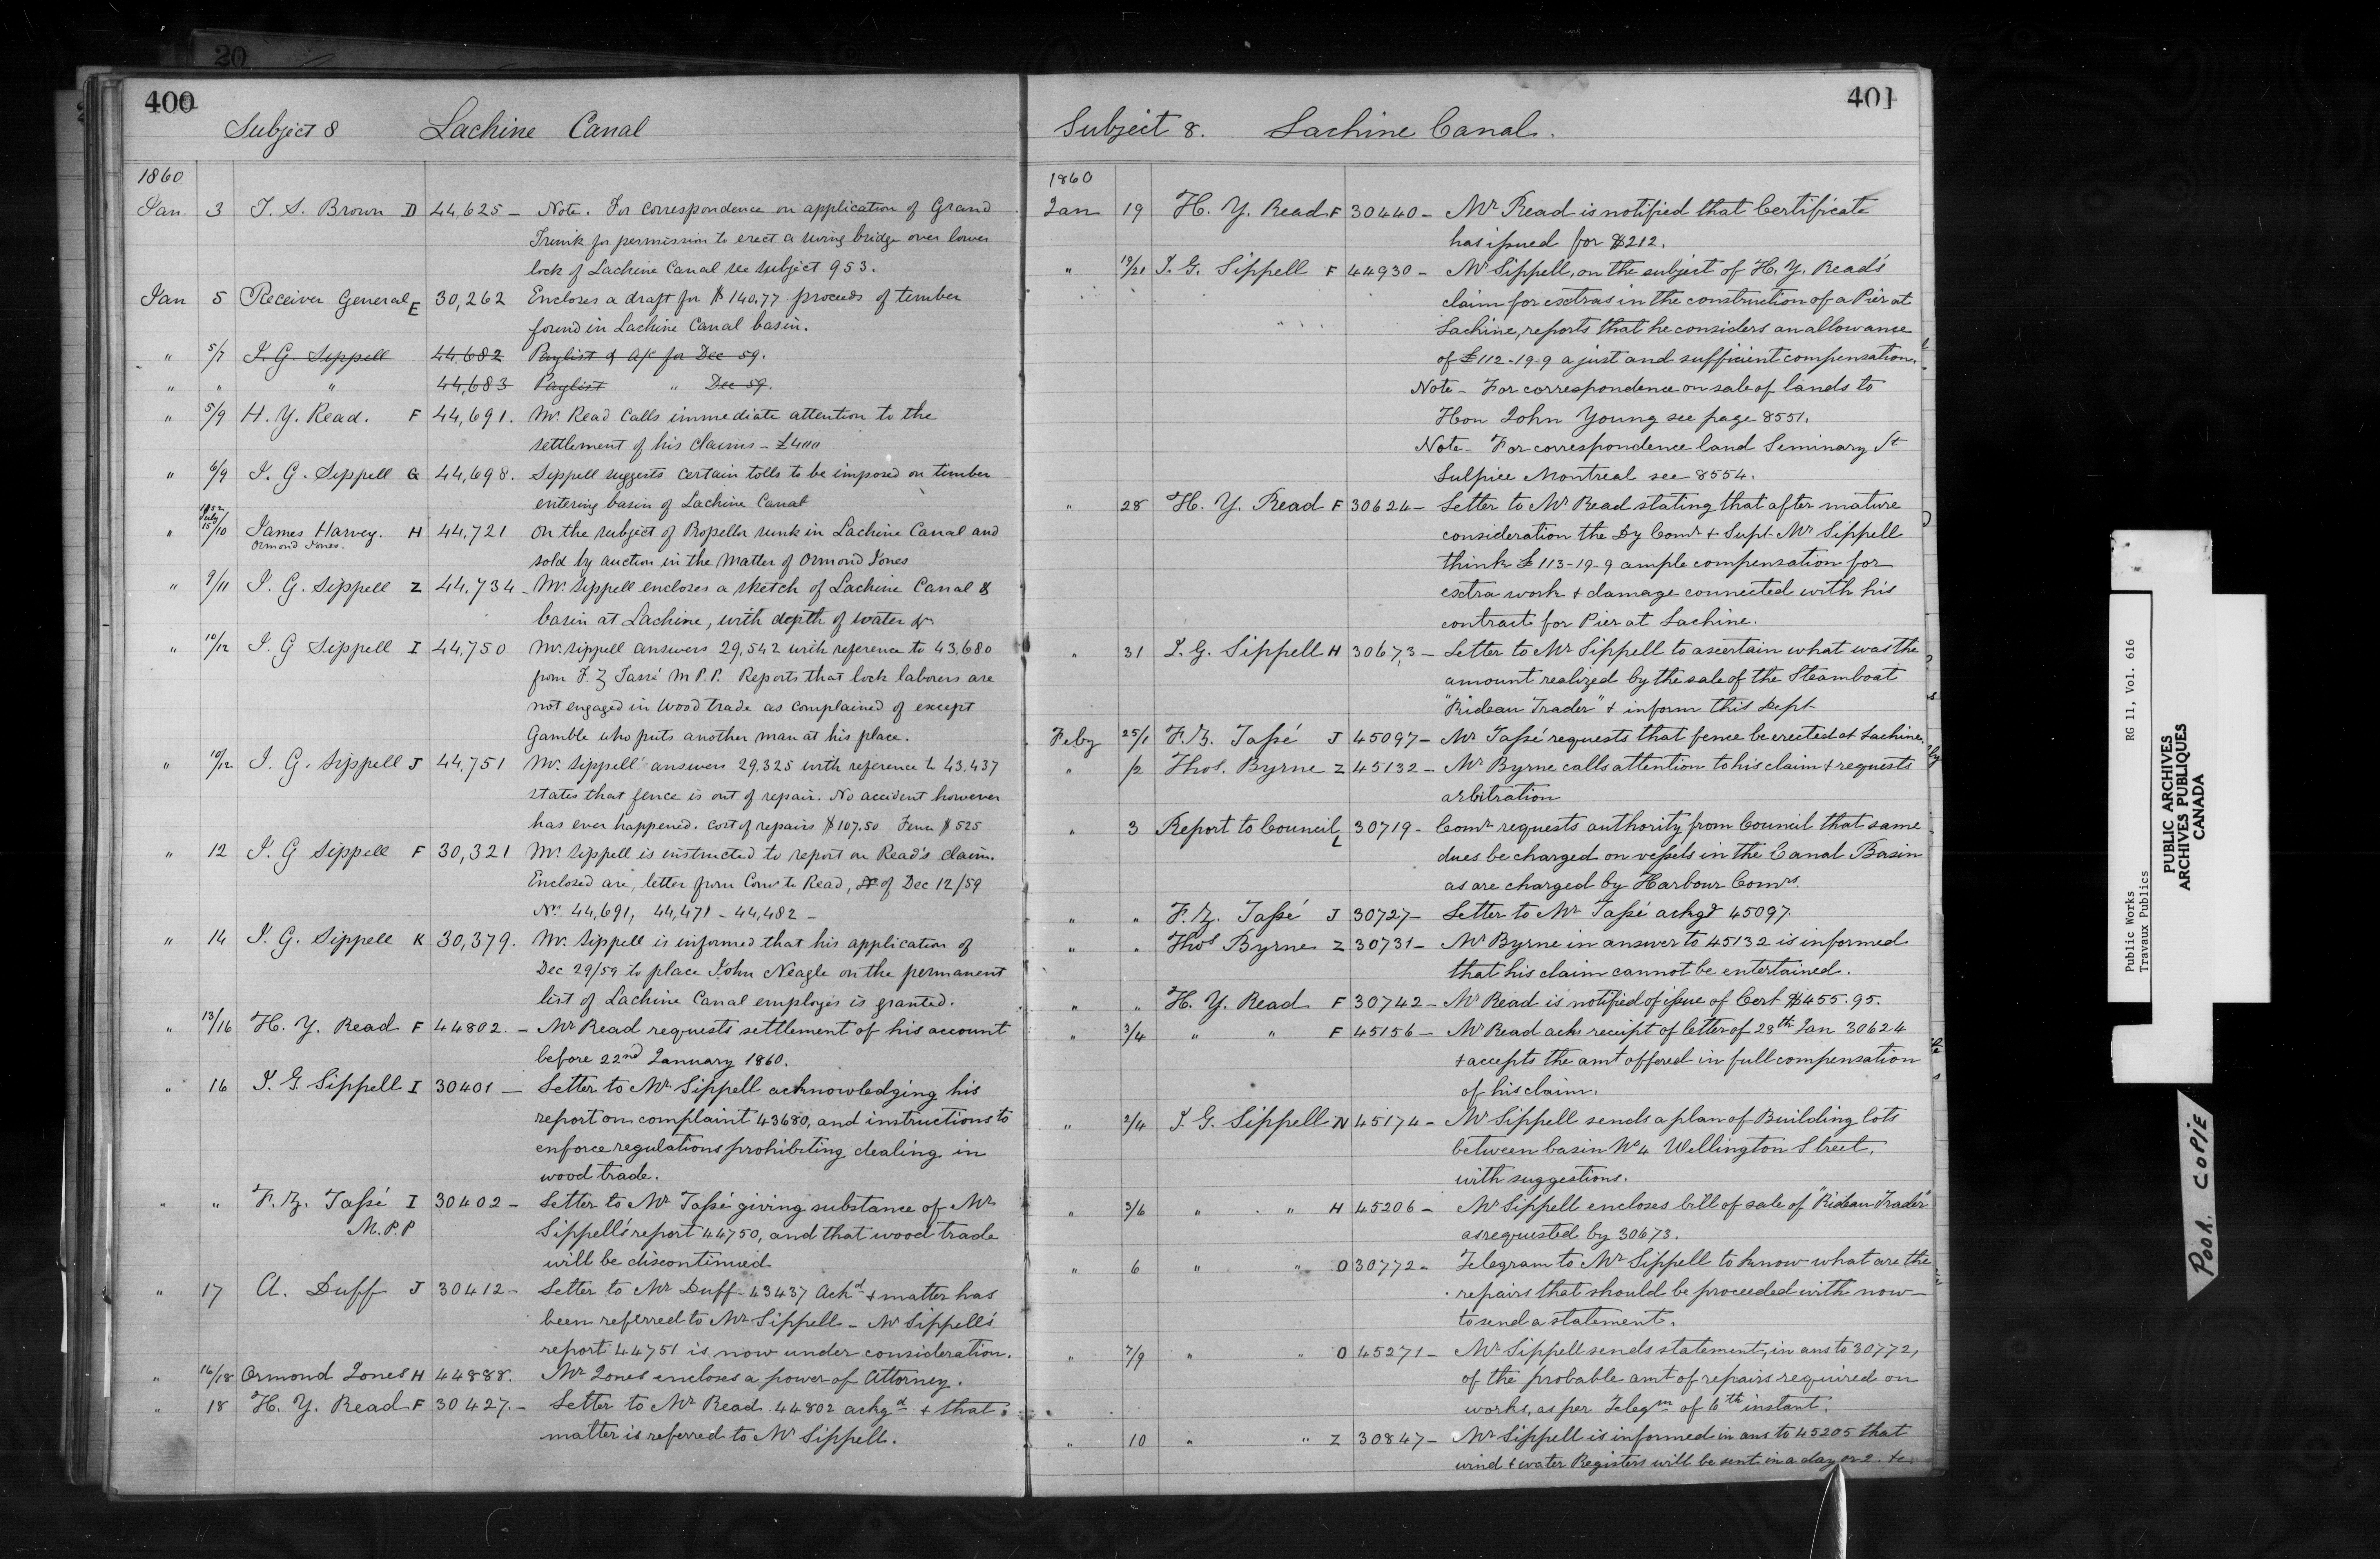 20
400
Subject 8 Lachine Canal
1860
Jan 3 T. S. Brown D 44,625 – Note. For correspondence on application of Grand
Trunk for permission to erect a swing bridge over lower
lock of Lachine Canal see subject 953.
Jan 5 Receiver General E 30,262 Encloses a draft for $140.77 proceeds of timber
found in Lachine Canal basin.
" 5/7 J. G. Sippell 44,682 Paylist & a/c for Dec 59.
" " " 44,683 Paylist " Dec 59.
" 5/9 H. Y. Read. F 44,691. Mr. Read calls immediate attention to the
settlement of his claims – £400
" 6/9 J. G. Sippell G 44,698. Sippell suggests certain tolls to be imposed on timber
entering basin of Lachine Canal
" July 15/10 James Harvey. H 44,721 On the subject of Propellor sunk in Lachine Canal and
Ormond Jones.
sold by auction in the Matter of Ormond Jones
" 9/11 J. G. Sippell Z 44,734 – Mr. Sippell encloses a sketch of Lachine Canal &
basin at Lachine, with depth of water &c
" 10/12 J. G Sippell I 44,750 Mr. Sippell answers 29,542 with reference to 43,680
from F. Z Tassé M P.P. Reports that lock laborers are
not engaged in wood trade as complained of except
Gamble who puts another man at his place.
" 10/12 J. G. Sippell J 44,751 Mr. Sippell answers 29,325 with reference to 43,437
states that fence is out of repair. No accident however
has ever happened. Cost of repairs $107.50 Fence $525
" 12 J. G Sippell F 30,321 Mr. Sippell is instructed to report on Read's claim.
Enclosed are, letter from Comr to Read, of Dec 12/59
No. 44,691, 44,471 – 44,482 –
" 14 J. G. Sippell K 30,379. Mr. Sippell is informed that his application of
Dec 29/59 to place John Neagle on the permanent
list of Lachine Canal employés is granted.
" 13/16 H. Y. Read F 44802. – Mr Read requests settlement of his account
before 22nd January 1860.
" 16 J. G. Sippell I 30401 – Letter to Mr Sippell acknowledging his
report on complaint 43680, and instructions to
enforce regulations prohibiting dealing in
wood trade.
" " F. Z. Tassé I 30402 – Letter to Mr Tassé giving substance of Mr
M.P.P Sippell's report 44750, and that wood trade
will be discontinued
" 17 A. Duff J 30412 – Letter to Mr Duff 43437 Ackd & matter has
been referred to Mr Sippell – Mr Sippell's
report 44751 is now under consideration.
" 16/18 Ormond Jones H 44888. Mr Jones encloses a power of Attorney.
" 18 H. Y. Read F 30427. – Letter to Mr Read 44802 ackgd & that
matter is referred to Mr Sippell.
401
Subject 8. Lachine Canal.
1860
Jan 19 H. Y. Read F 30440 – Mr Read is notified that Certificate
has issued for $212.
" 19/21 J. G. Sippell F 44930 – Mr Sippell, on the subject of H. Y. Read's
claim for extras in the construction of a Pier at
Lachine, reports that he considers an allowance
of £112-19-9 a just and sufficient compensation.
Note – For correspondence on sale of lands to
Hon John Young see page 8551.
Note – For correspondence land Seminary St
Sulpice Montreal see 8554.
" 28 H. Y. Read F 30624 – Letter to Mr Read stating that after mature
consideration the Dy Comr & Supt Mr Sippell
think £113-19-9 ample compensation for
extra work & damage connected with his
contract for Pier at Lachine.
" 31 J. G. Sippell H 30673 – Letter to Mr Sippell to ascertain what was the
amount realized by the sale of the Steamboat
"Rideau Trader" & inform this Dept
Feby 25/1 F. Z. Tassé J 45097 – Mr Tassé requests that fence be erected at Lachine.
" /2 Thos. Byrne Z 45132 – Mr Byrne calls attention to his claim & requests
arbitration
" 3 Report to Council L 30719 – Comr requests authority from Council that same
dues be charged on vessels in the Canal Basin
as are charged by Harbour Comrs.
" " F. Z. Tassé J 30727 – Letter to Mr Tassé ackgd 45097.
" " Thos Byrne Z 30731 – Mr Byrne in answer to 45132 is informed
that his claim cannot be entertained.
" " H. Y. Read F 30742 – Mr Read is notified of issue of Cert $455.95.
" 3/4 " " F 45156 – Mr Read acks receipt of letter of 28th Jan 30624
& accepts the amt offered in full compensation
of his claim.
" 2/4 J. G. Sippell N 45174 – Mr Sippell sends a plan of Building lots
between basin No 4 Wellington Street,
with suggestions.
" 3/6 " " H 45206 – Mr Sippell encloses bill of sale of "Rideau Trader"
as requested by 30673.
" 6 " " O 30772 – Telegram to Mr Sippell to know what are the
repairs that should be proceeded with now –
to send a statement.
" 7/9 " " O 45271 – Mr Sippell sends statement, in ans to 30772,
of the probable amt of repairs required on
works, as per Telegm of 6th instant.
" 10 " " Z 30847 – Mr Sippell is informed in ans to 45205 that
wind & water Registers will be sent in a day or 2. &c.
Public Works RG 11, Vol. 616
Travaux Publics
PUBLIC ARCHIVES
ARCHIVES PUBLIQUES
CANADA
POOR COPIE